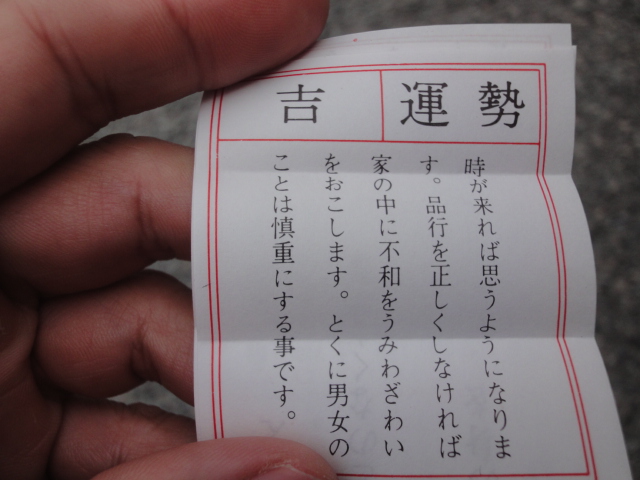 運勢
吉
時が来れば思うようになりま
す。品行を正しくしなければ
家の中に不和をうみわざわい
をおこします。とくに男女の
ことは慎重にする事です。